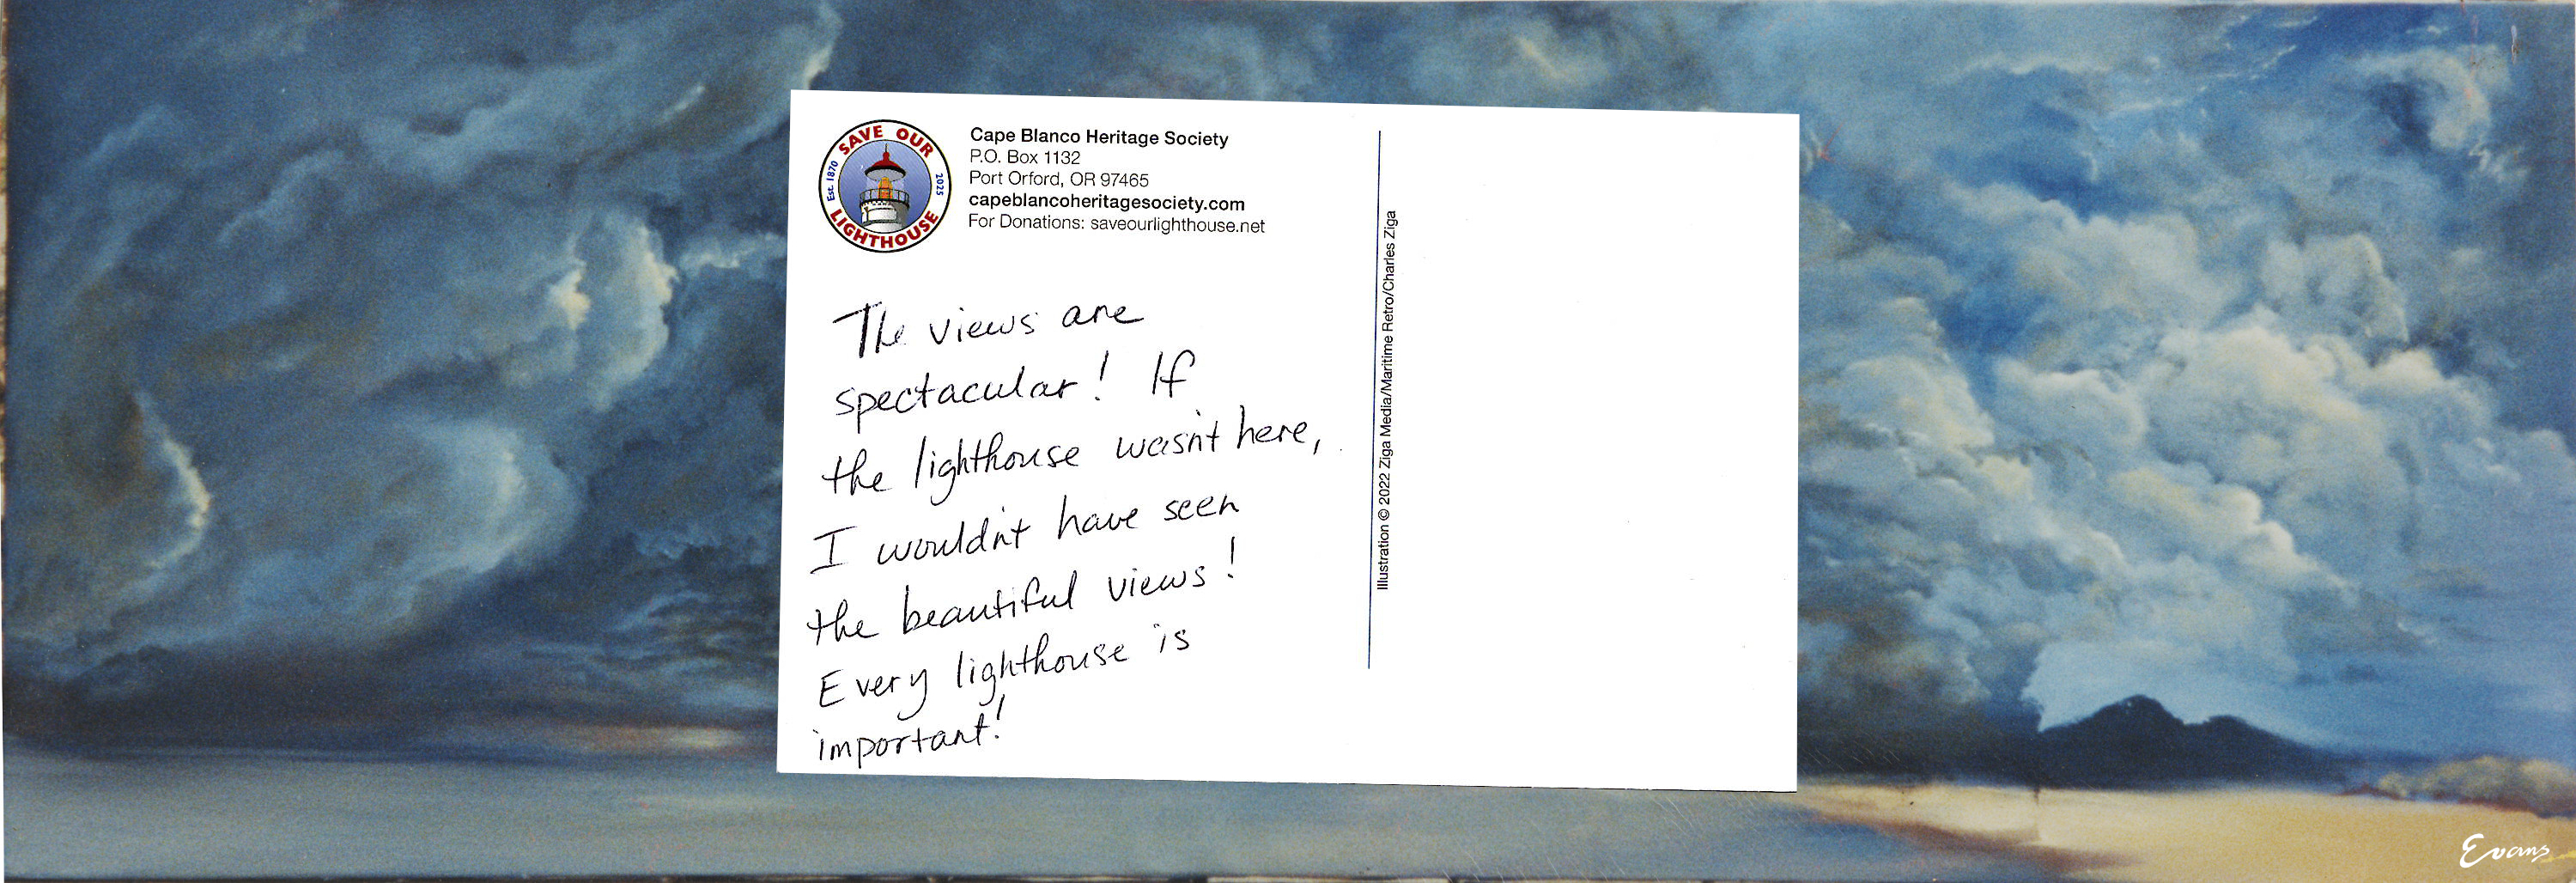 SAVE OUR
Est. 1870
2025
LIGHTHOUSE
Cape Blanco Heritage Society
P.O. Box 1132
Port Orford, OR 97465
capeblancoheritagesociety.com
For Donations: saveourlighthouse.net
The views are
spectacular! If
the lighthouse wasn't here,
I wouldn't have seen
the beautiful views!
Every lighthouse is
important!
Illustration © 2022 Ziga Media/Maritime Retro/Charles Ziga
Evans